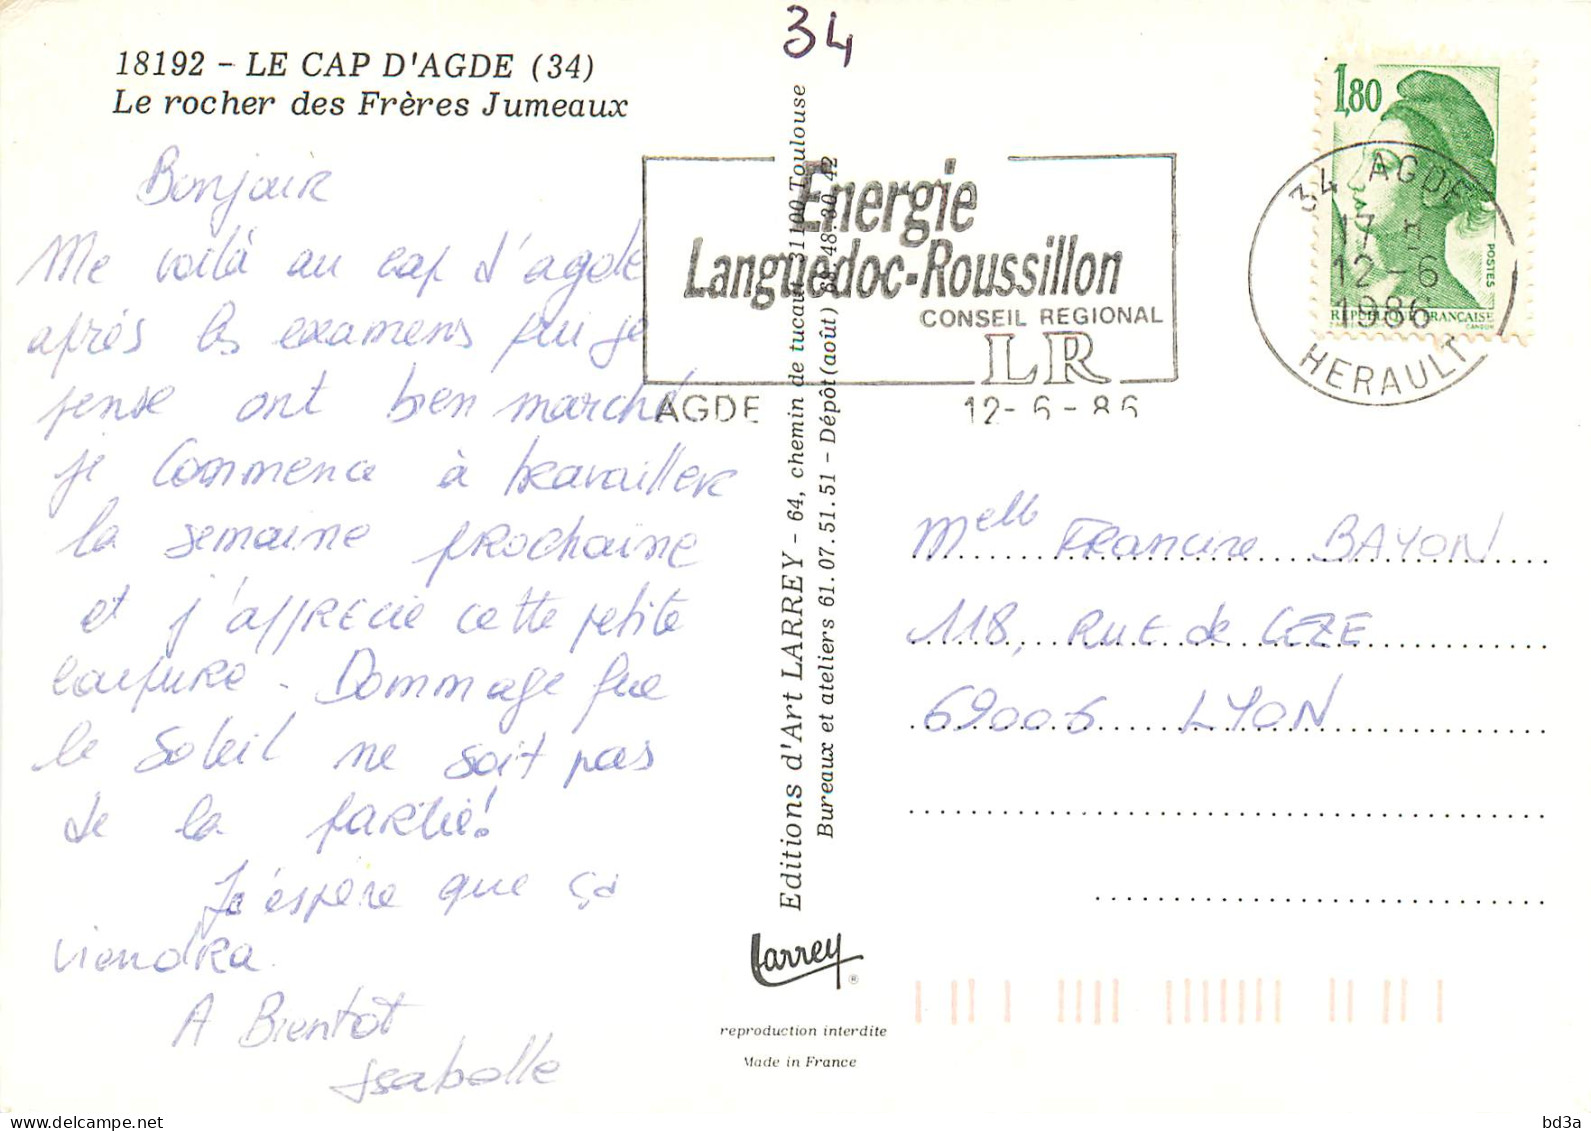 34
18192 - LE CAP D'AGDE (34)
Le rocher des Frères Jumeaux
Bonjour
Me voilà au cap d'agde
après les examens qui je
pense ont bien marché
je commence à travailler
la semaine prochaine
et j'apprecie cette petite
coupure - Dommage que
le soleil ne soit pas
de la partie!
J'espère que ça
viendra.
A Bientot
Isabelle
Editions d'Art LARREY - 64, chemin de tucaut 31100 Toulouse
Bureaux et ateliers 61.07.51.51 - Dépôt (août) 48.30.42
larrey ®
reproduction interdite
Made in France
Energie
Languedoc-Roussillon
CONSEIL REGIONAL
LR
AGDE 12-6-86
1,80
POSTES
REPUBLIQUE FRANÇAISE
GANDON
34 AGDE
17 H
12-6
1986
HERAULT
Melle Francine BAYON
118, RUE de CEZE
69006 LYON
delcampe.net
bd3a